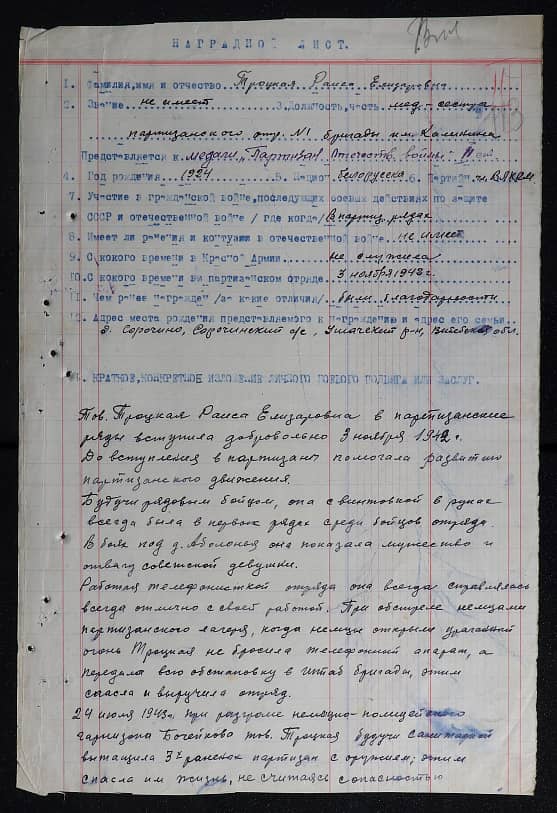 НАГРАДНОЙ ЛИСТ.
1. Фамилия, имя и отчество Троцкая Раиса Елизаровна
2. Звание не имеет 3. Должность, часть мед-сестра
партизанского отр. №1 бригады им. Калинина
Представляется к медали „Партизан Отечеств. войны" II ст
4. Год рождения 1924 5. Национ. белорусска 6. Партийн. чл. ВЛКСМ
7. Участие в гражданской войне, последующих боевых действиях по защите
СССР и отечественной войне / где когда/ В партиз. рядах
8. Имеет ли ранения и контузии в отечественной войне не имеет
9. С какого времени в Красной Армии не служила
10. С какого времени в партизанском отряде 3 ноября 1942 г.
11. Чем ранее награжден /за какие отличия/ были благодарности
12. Адрес места рождения представляемого к награждению и адрес его семьи
д. Сорочино, Сорочинский с/с, Ушачский р-н, Витебской обл.
КРАТКОЕ, КОНКРЕТНОЕ ИЗЛОЖЕНИЕ ЛИЧНОГО БОЕВОГО ПОДВИГА ИЛИ ЗАСЛУГ.
Тов. Троцкая Раиса Елизаровна в партизанские
ряды вступила добровольно 3 ноября 1942 г.
До вступления в партизаны помогала развитию
партизанского движения.
Будучи рядовым бойцом, она с винтовкой в руках
всегда была в первых рядах среди бойцов отряда.
В боях под д. Аболонья она показала мужество и
отвагу советской девушки.
Работая телефонисткой отряда она всегда справлялась
всегда отлично с своей работой. При обстреле немцами
партизанского лагеря, когда немцы открыли ураганный
огонь Троцкая не бросила телефонный апарат, а
передала всю обстановку в штаб бригады, этим
спасла и выручила отряд.
24 июля 1943 г. при разгроме немецко-полицейского
гарнизона Бочейково тов. Троцкая будучи санитаркой
вытащила 3х раненых партизан с оружием; этим
спасла им жизнь, не считаясь с опасностью